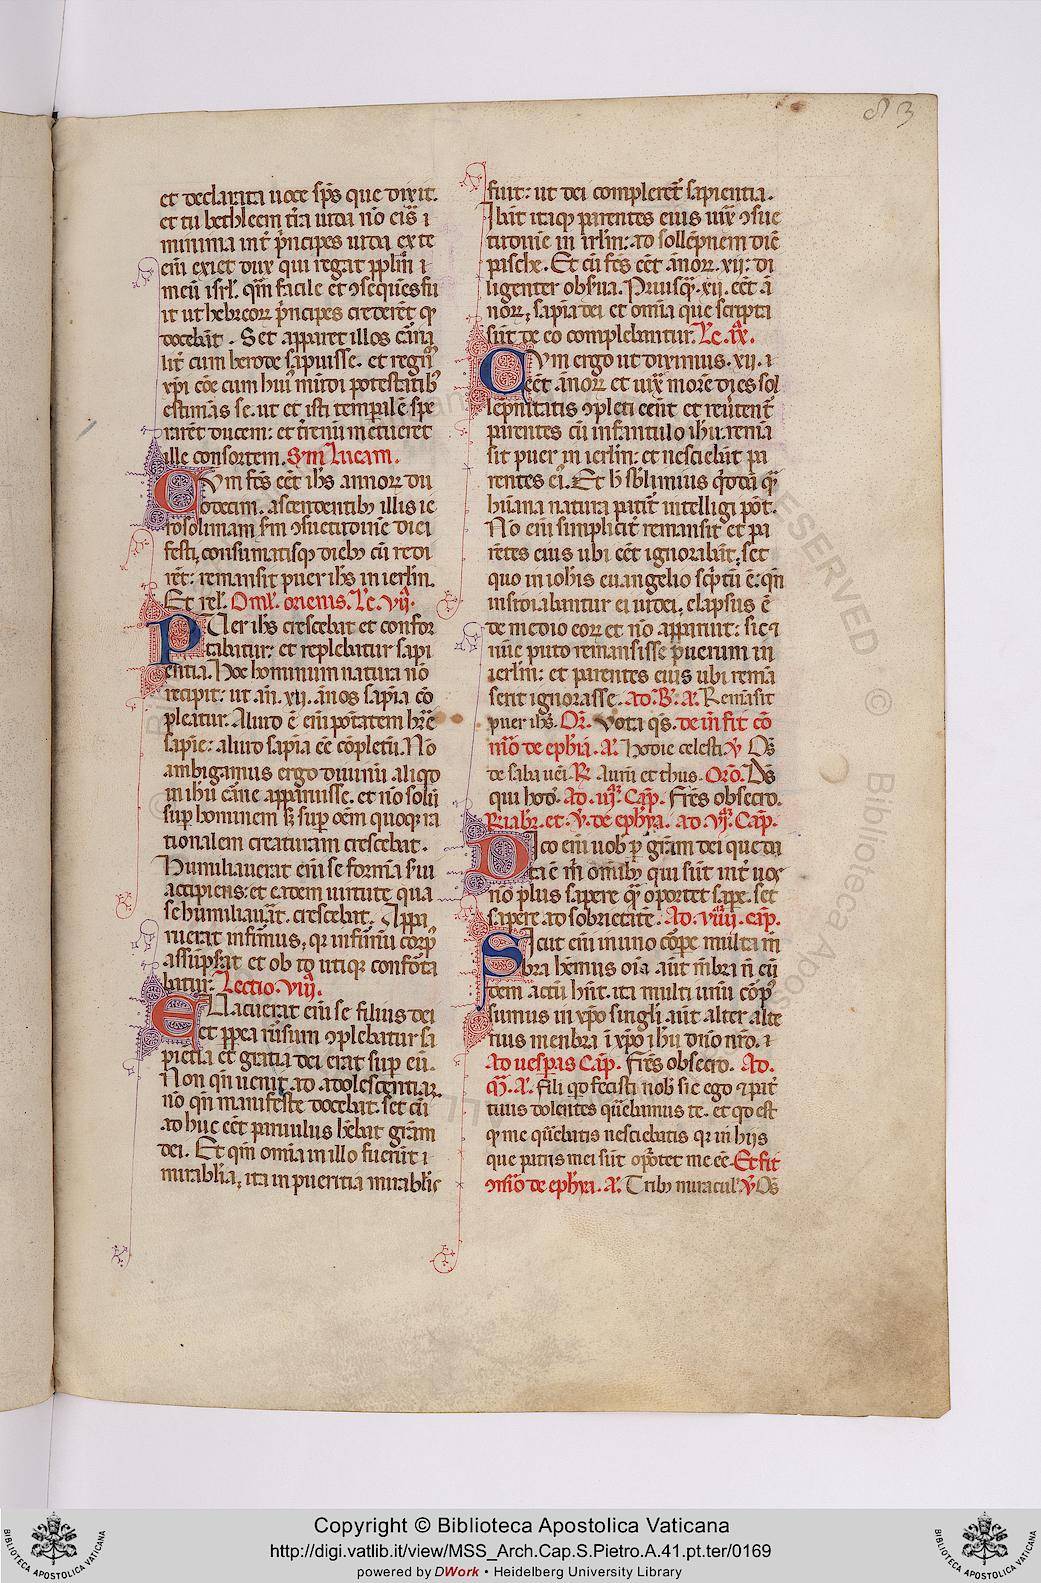 83
et declarata uoce sps que dixit.
et tu bethleem tra iuda no eis i
minima int principes iuda ex te
eni exiet dux qui regat pplm
meu isrl. qm facile et osequens fu
it ut hebreor principes crederet qd
docebat. Set apparet illos
cum herode sapuisse. et regnu
xpi coe cum huius mundi potestatib
estimas se. ut et isti temporale spe
raret ducem: et terrenu metueret
ille consortem. Sm Lucam.
Cum fcs eet ihs annor du
odecim. ascendentib illis ie
rosolimam sm osuetudine diei
festi, consumatisq dieb cu redi
ret: remansit puer ihs in ierlm.
Et rel. Oml. orienis. Lc. vij.
Puer ihs crescebat et confor
tabatur: et replebatur sapi
entia. Hoc hominum natura no
recipit: ut an. xij. anos sapia co
pleatur. Aliud e eni portatem hre
sapie: aliud sapia ee copletu. No
ambigamus ergo diuinu aliqd
in ihu carne apparuisse. et no solu
sup hominem s sup oem quoq ra
tionalem creaturam crescebat.
Humiliauerat eni se forma serui
accipiens: et eadem uirtute qua
se humiliauat. crescebat. Appa
ruerat infirmus, qr infirmu corp
assupsat et ob id utique conforta
batur. Lectio. viij.
Exinacuerat eni se filius dei
et pprea rursum oplebatur sa
pietia et gratia dei erat sup eu.
Non qn uenit ad adolescentia.
no qn manifeste docebat. set cu
ad huc eet paruulus hebat gram
dei. Et qm omia in illo fuerut
mirabilia, ita in pueritia mirabilis
fuit: ut dei compleret sapientia.
Ibat itaq parentes eius iux osue
tudine in irlm: ad sollepnem die
pasche. Et cu fcs eet annor. xij: di
ligenter obserua. Priusq. xij. eet a
nor, sapia dei et omia que scripta
sut de eo complebantur. Lc. ix.
Cum ergo ut diximus. xij.
eet annor et iux more dies sol
lepnitatis opleti eent et reuertent
parentes cu infantulo ihu. rema
sit puer in ierlm: et nesciebat pa
rentes ei. Et h sblimius quodda q
humana natura patiat intelligi pot.
No eni simpliciter remansit et pa
retes eius ubi eet ignorabat, set
quo in iohis euangelio scptu e. qn
insidiabantur ei iudei, elapsus e
de medio eor et no apparuit: sic
nuc puto remansisse puerum in
ierlm: et parentes eius ubi rema
serit ignorasse. ad. B. a. Remasit
puer ihs. Or. Vota qs. de in fit co
mo de eph. a. Hodie celesti V Os
de saba ueni. R Auru et thus. Oro. Ds
qui hodi. Ad. iij. Cap. Frs obsecro.
Riabr. et. V. de ephya. ad. vj. Cap.
Dico eni uob p gram dei que da
ta e m omib qui sut int uos
no plus sapere q oportet sape. set
sapere ad sobrietate. Ad. viiij. cap.
Sicut eni in uno corpe multa m
bra hemus oia aut mbra n eu
dem actu hnt. ita multi unu corp
sumus in xpo singli aut alter alte
rius menbra i xpo ihu dno nro.
Ad uespas Cap. Frs obsecro. Ad.
M. a. Fili qd fecisti nob sic ego et pat
tuus dolentes querebamus te. et qd est
q me querebatis nesciebatis qr in hijs
que patris mei sut oportet me ee. Et fit
omo de ephya. a. Trib miracul. V Os
Copyright © Biblioteca Apostolica Vaticana
http://digi.vatlib.it/view/MSS_Arch.Cap.S.Pietro.A.41.pt.ter/0169
powered by DWork • Heidelberg University Library